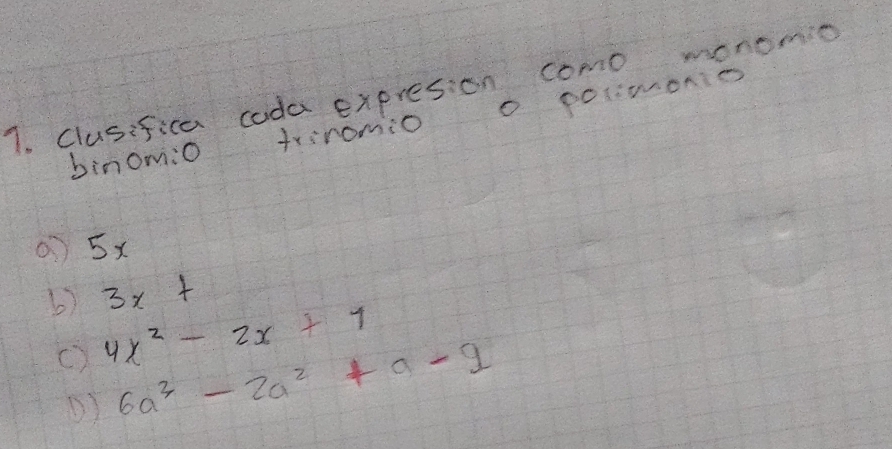 1. Clasifica cada expresion como monomio
binomio trinomio o polimonio
a) 5x
b) 3x +
c) 4x² - 2x + 1
D) 6a³ - 2a² + a - 9